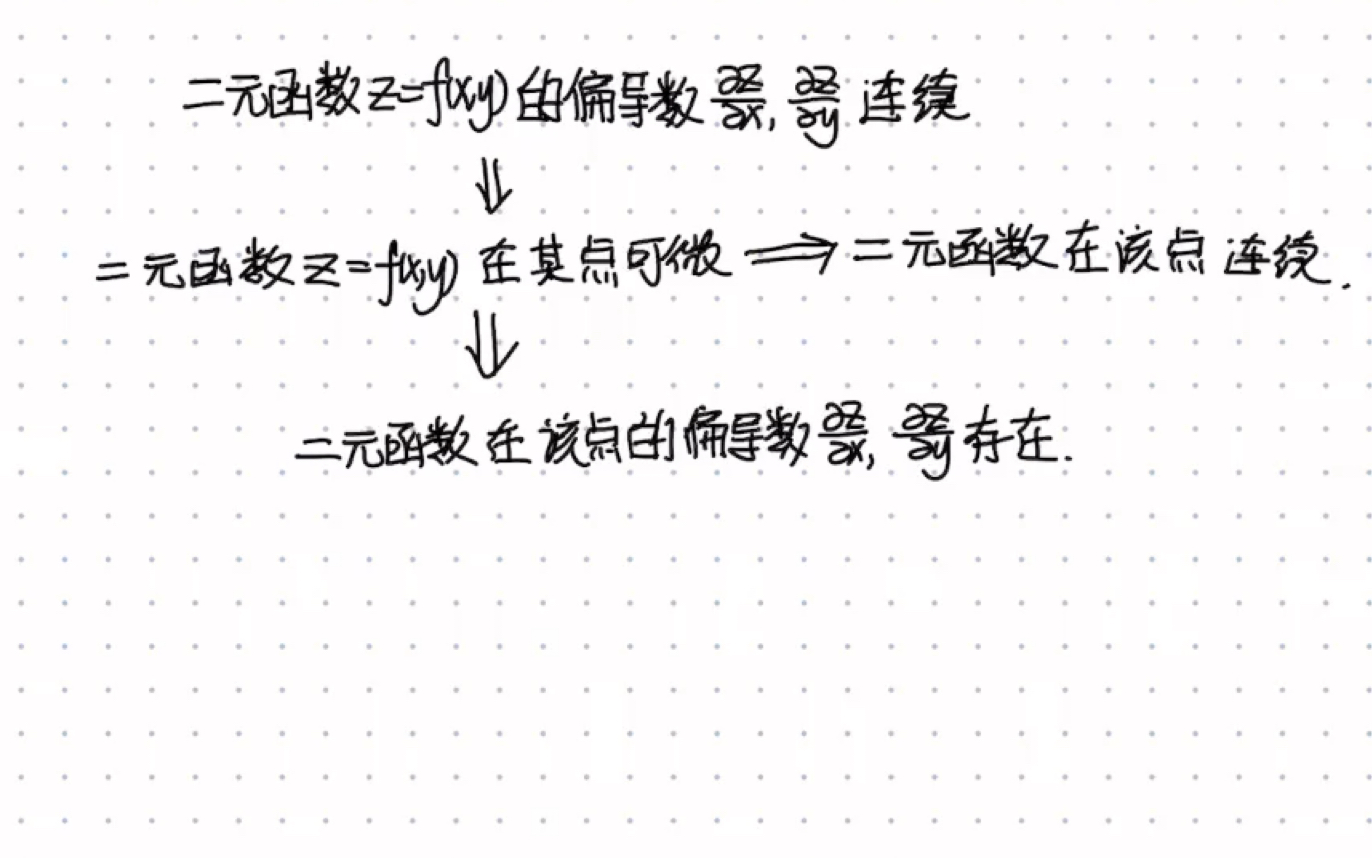 二元函数z=f(x,y)的偏导数∂z/∂x, ∂z/∂y 连续
⇓
二元函数z=f(x,y) 在某点可微 ⟹ 二元函数在该点连续.
⇓
二元函数在该点的偏导数∂z/∂x, ∂z/∂y存在.